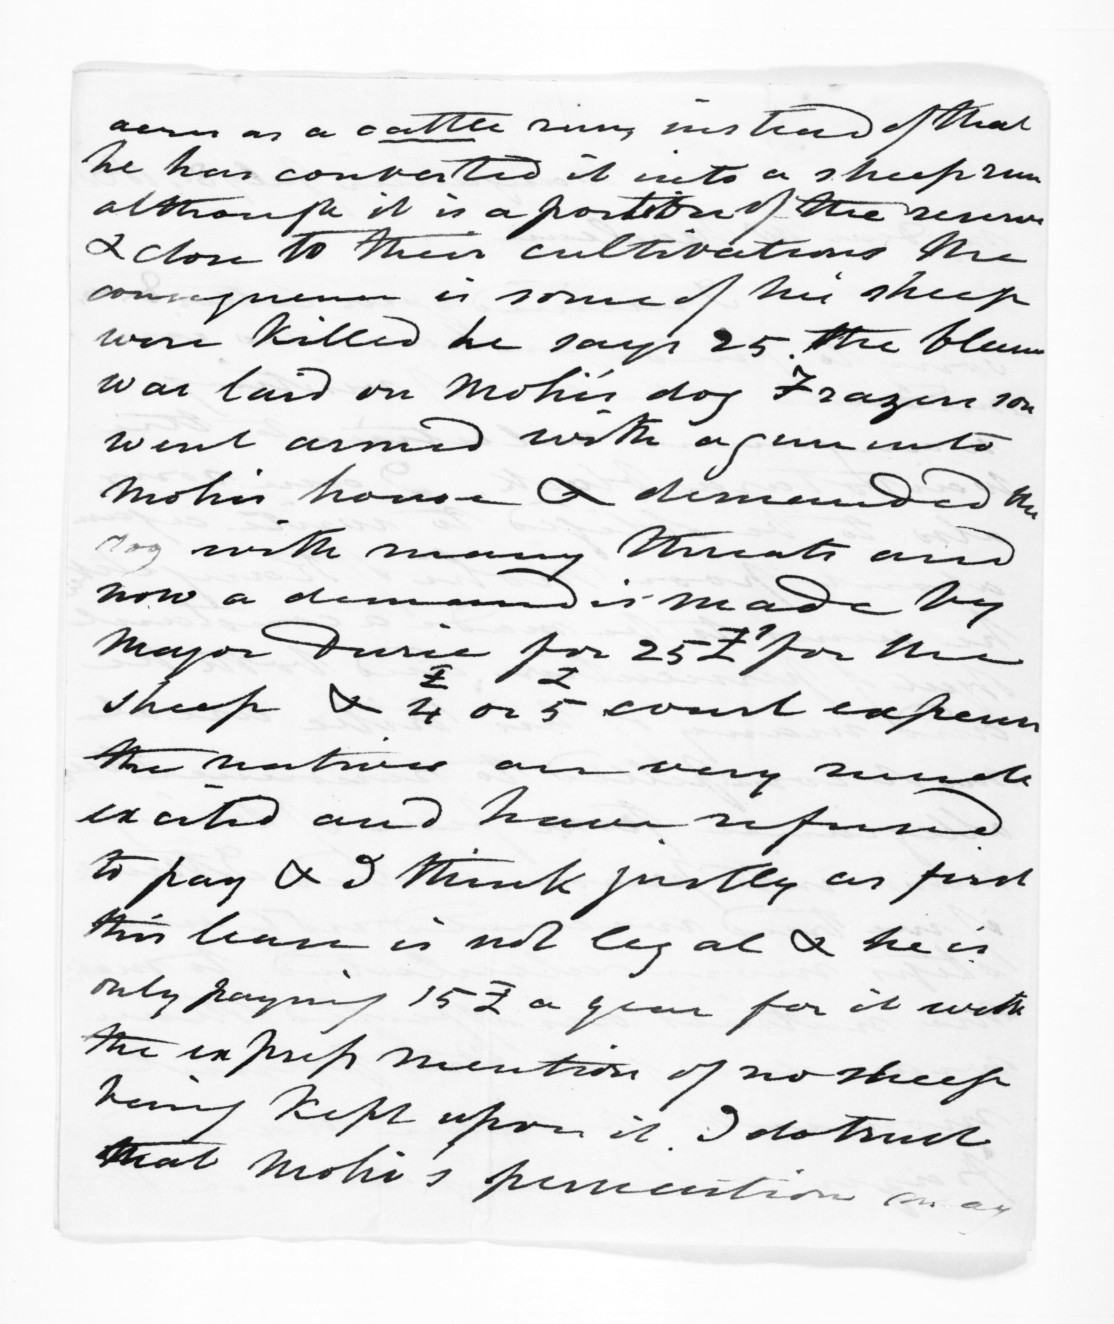 acres as a cattle run, instead of that
he has converted it into a sheep run
although it is a portion of the reserve
& close to their cultivations The
consequence is some of his sheep
were killed he says 25. the blame
was laid on Mohi's dog Frazers son
went armed with a gun into
Mohis house & demanded the
dog with many threats and
now a demand is made by
Major Durie for 25£ for the
sheep & 4£ or 5£ court expenses
the natives are very much
excited and have refused
to pay & I think justly as first
this lease is not legal & he is
only paying 15£ a year for it with
the express mention of no sheep
being kept upon it. I do trust
that Mohi's persecution may